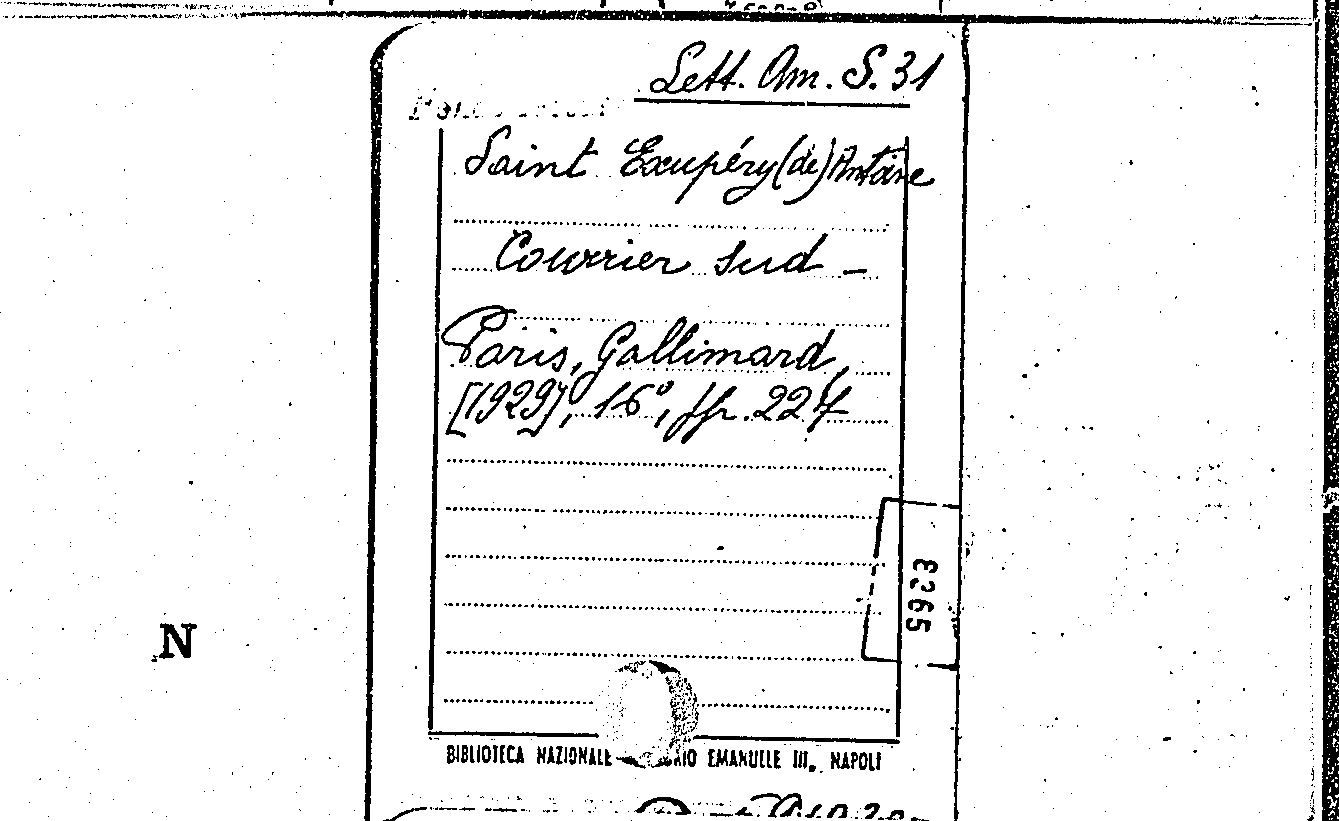 Lett. Am. S. 31
Saint Exupéry (de) Antoine
Courrier sud -
Paris, Gallimard,
[1929], 16°, pp. 227
E265
N
BIBLIOTECA NAZIONALE EMANUELE III. NAPOLI